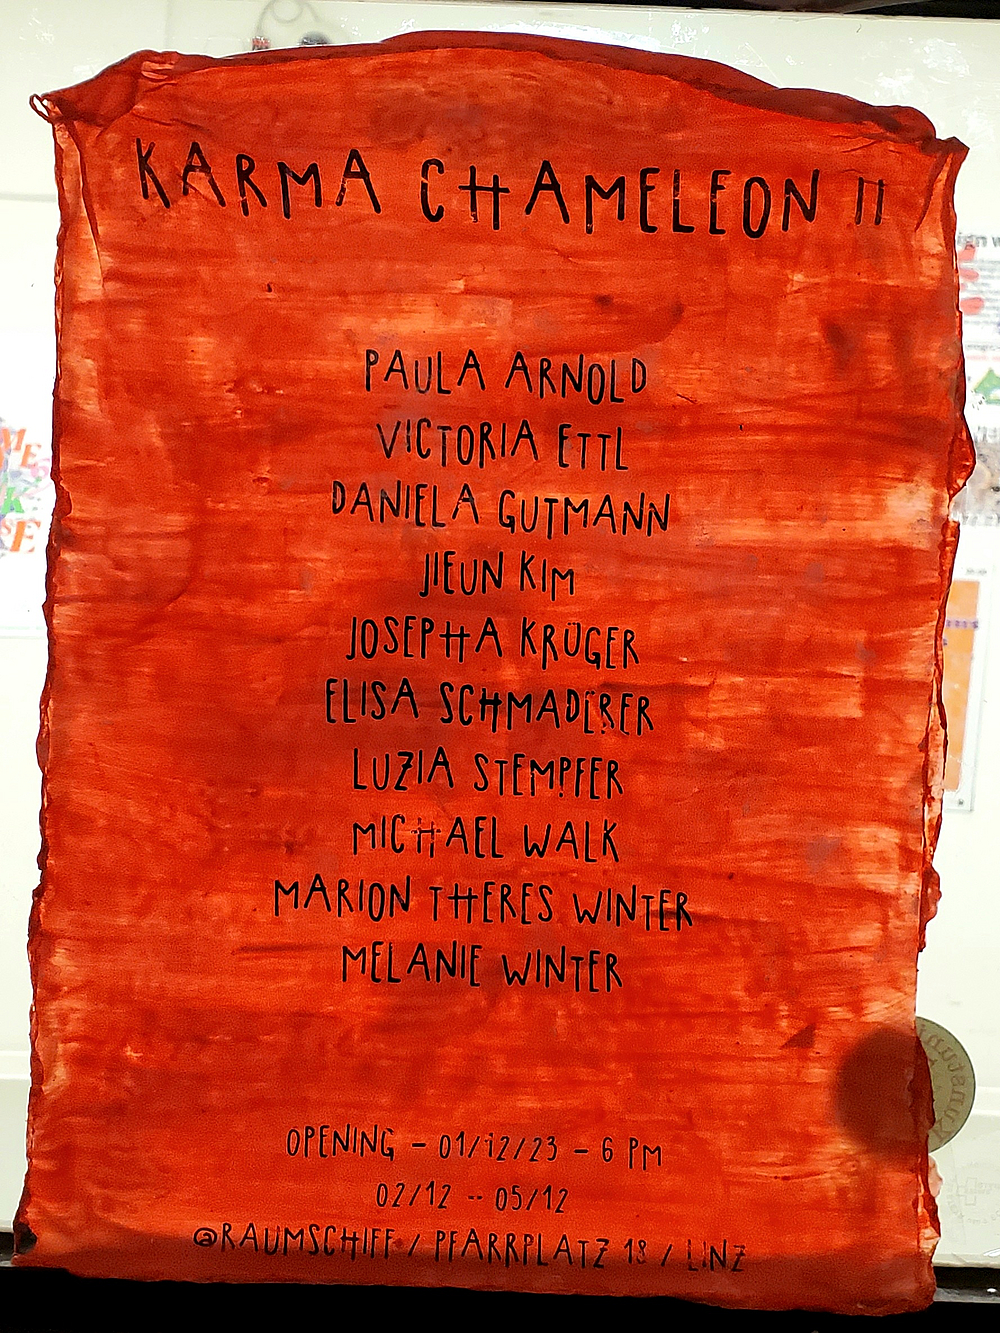 KARMA CHAMELEON II
PAULA ARNOLD
VICTORIA ETTL
DANIELA GUTMANN
JIEUN KIM
JOSEPHA KRÜGER
ELISA SCHMADERER
LUZIA STEMPFER
MICHAEL WALK
MARION THERES WINTER
MELANIE WINTER
OPENING - 01/12/23 - 6 PM
02/12 -- 05/12
@RAUMSCHIFF / PFARRPLATZ 18 / LINZ